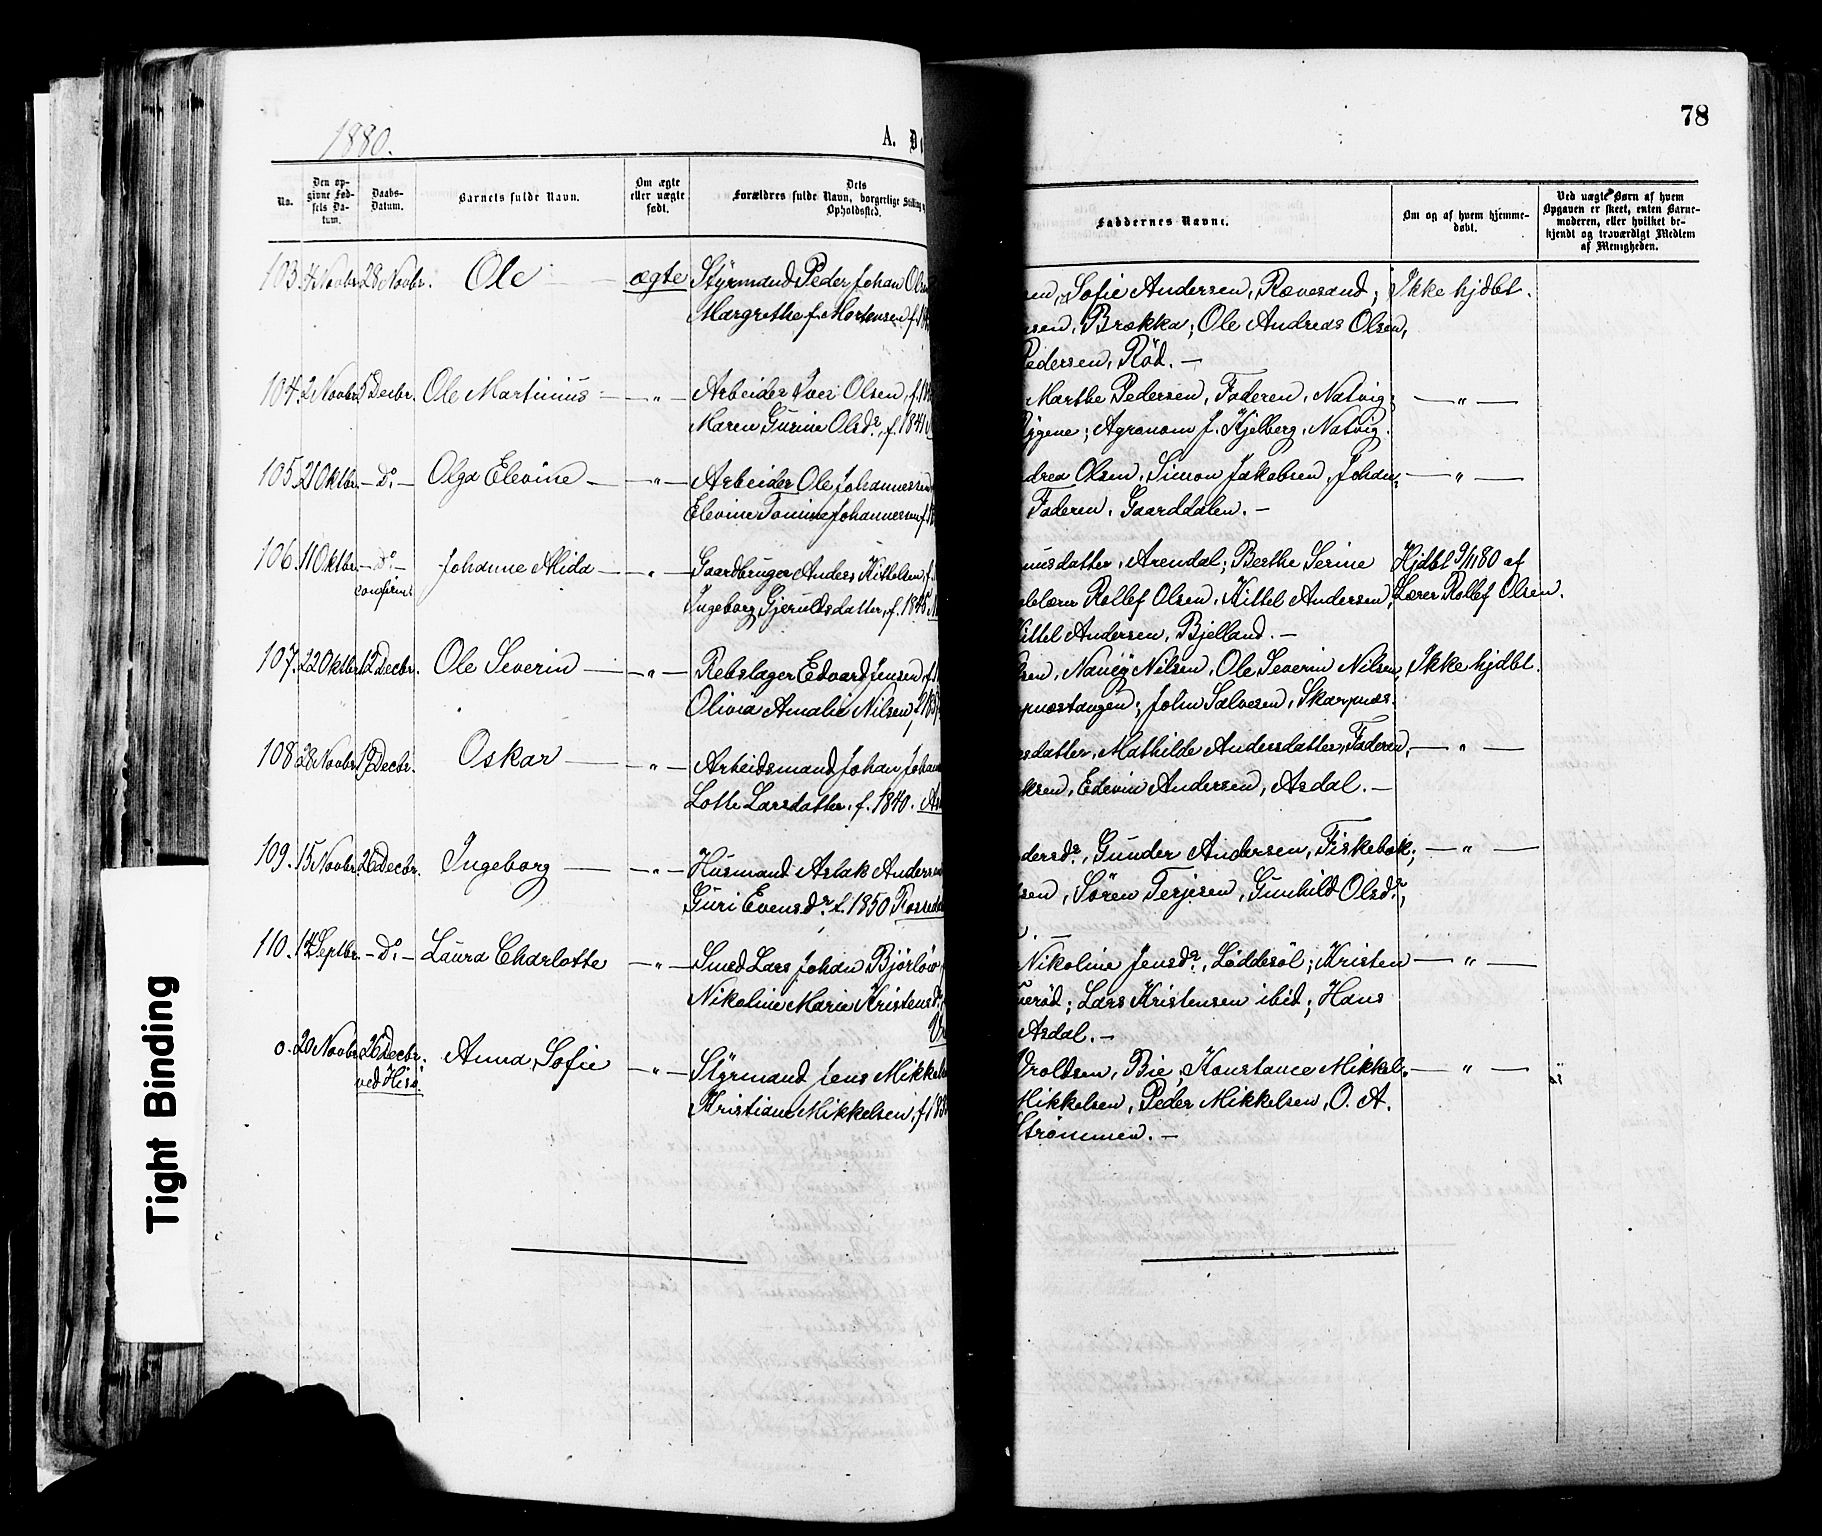 78
1880.
A. D
No.
Den op-
givne Fød-
sels Da-
tum.
Daabs-
Datum.
Barnets fulde Navn.
Om ægte
eller uægte
født.
Dets
Forældres fulde Navn, borgerlige Stilling
Opholdssted.
Faddernes Navne.
Om og af hvem hjemme-
døbt.
Ved uægte Børn af hvem
Opgaven er skeet, enten Barne-
moderen, eller hvilket be-
kjendt og troværdigt Medlem
af Menigheden.
103. 4 Novbr. 28 Novbr. Ole — ægte Styrmand Peder Johan Ols
Margrethe f. Mortensen f. 18
en, Sofie Andersen, Rævesand; Ikke hjdbt.
sen, Brække; Ole Andreas Olsen,
Pedersen, Rød. —
104. 2 Novbr. 5 Decbr. Ole Martinius — — „ — Arbeider Iver Olsen, f. 18
Maren Gurine Olsdr., f. 1841
Marthe Pedersen, Faderen, Natvig; — „ —
Agronom J. Kjelberg, Natvig.
105. 21 Oktbr. — Do. — Olga Elevine — — „ — Arbeider Ole Johannessen
Elevine Tomine Johannessen f. 18
drea Olsen, Simon Jakobsen, Johan- — „ —
Faderen, Gaarddalen. —
106. 11 Oktbr. — Do. — Johanne Alida — — „ — Gaardbruger Anders Kittelsen, f.
confirm.
Ingeborg Gjeruldsdatter, f. 1845.
sdatter, Arendal; Berthe Serine Hjdbt 9/11 80 af
lærer Rollef Olsen, Kittel Andersen, Lærer Rollef Olsen.
Kittel Andersen, Bjelland. —
107. 22 Oktbr. 12 Decbr. Ole Severin — — „ — Rebslager Edvard Jensen, f.
Olivia Amalie Nilsen,
sen, Nancy Nilsen, Ole Severin Nilsen, Ikke hjdbt.
pnæstangen; John Salvesen, Skarpnæs.
108. 28 Novbr. 19 Decbr. Oskar — — „ — Arbeidsmand Johan Johan
Lotte Larsdatter, f. 1840. As
sdatter, Mathilde Andersdatter, Faderen, — „ —
ksen, Edevin Andersen, Asdal. —
109. 15 Novbr. 26 Decbr. Ingeborg — — „ — Husmand Aslak Anders
Guri Evensdr. f. 1850
dersdr., Gunder Andersen, Fiskebæk; — „ —
sen, Søren Terjesen, Gunhild Olsdr.,
110. 14 Septbr. — Do. — Laura Charlotte — „ — Smed Lars Johan Bjørlow
Nikoline Marie Kristensdr.,
Nikoline Jensdr., Løddesøl; Kristen — „ —
erød; Lars Kristensen ibid; Hans
Asdal. —
0. 20 Novbr. 26 Decbr. Anna Sofie — „ — Styrmand Jens Mikkel
ved Hisø.
Kristiane Mikkelsen, f. 183
Vroldsen, Bie, Konstance Mikkel- — „ —
Mikkelsen, Peder Mikkelsen, O. A.
Strømmen. —
Tight Binding